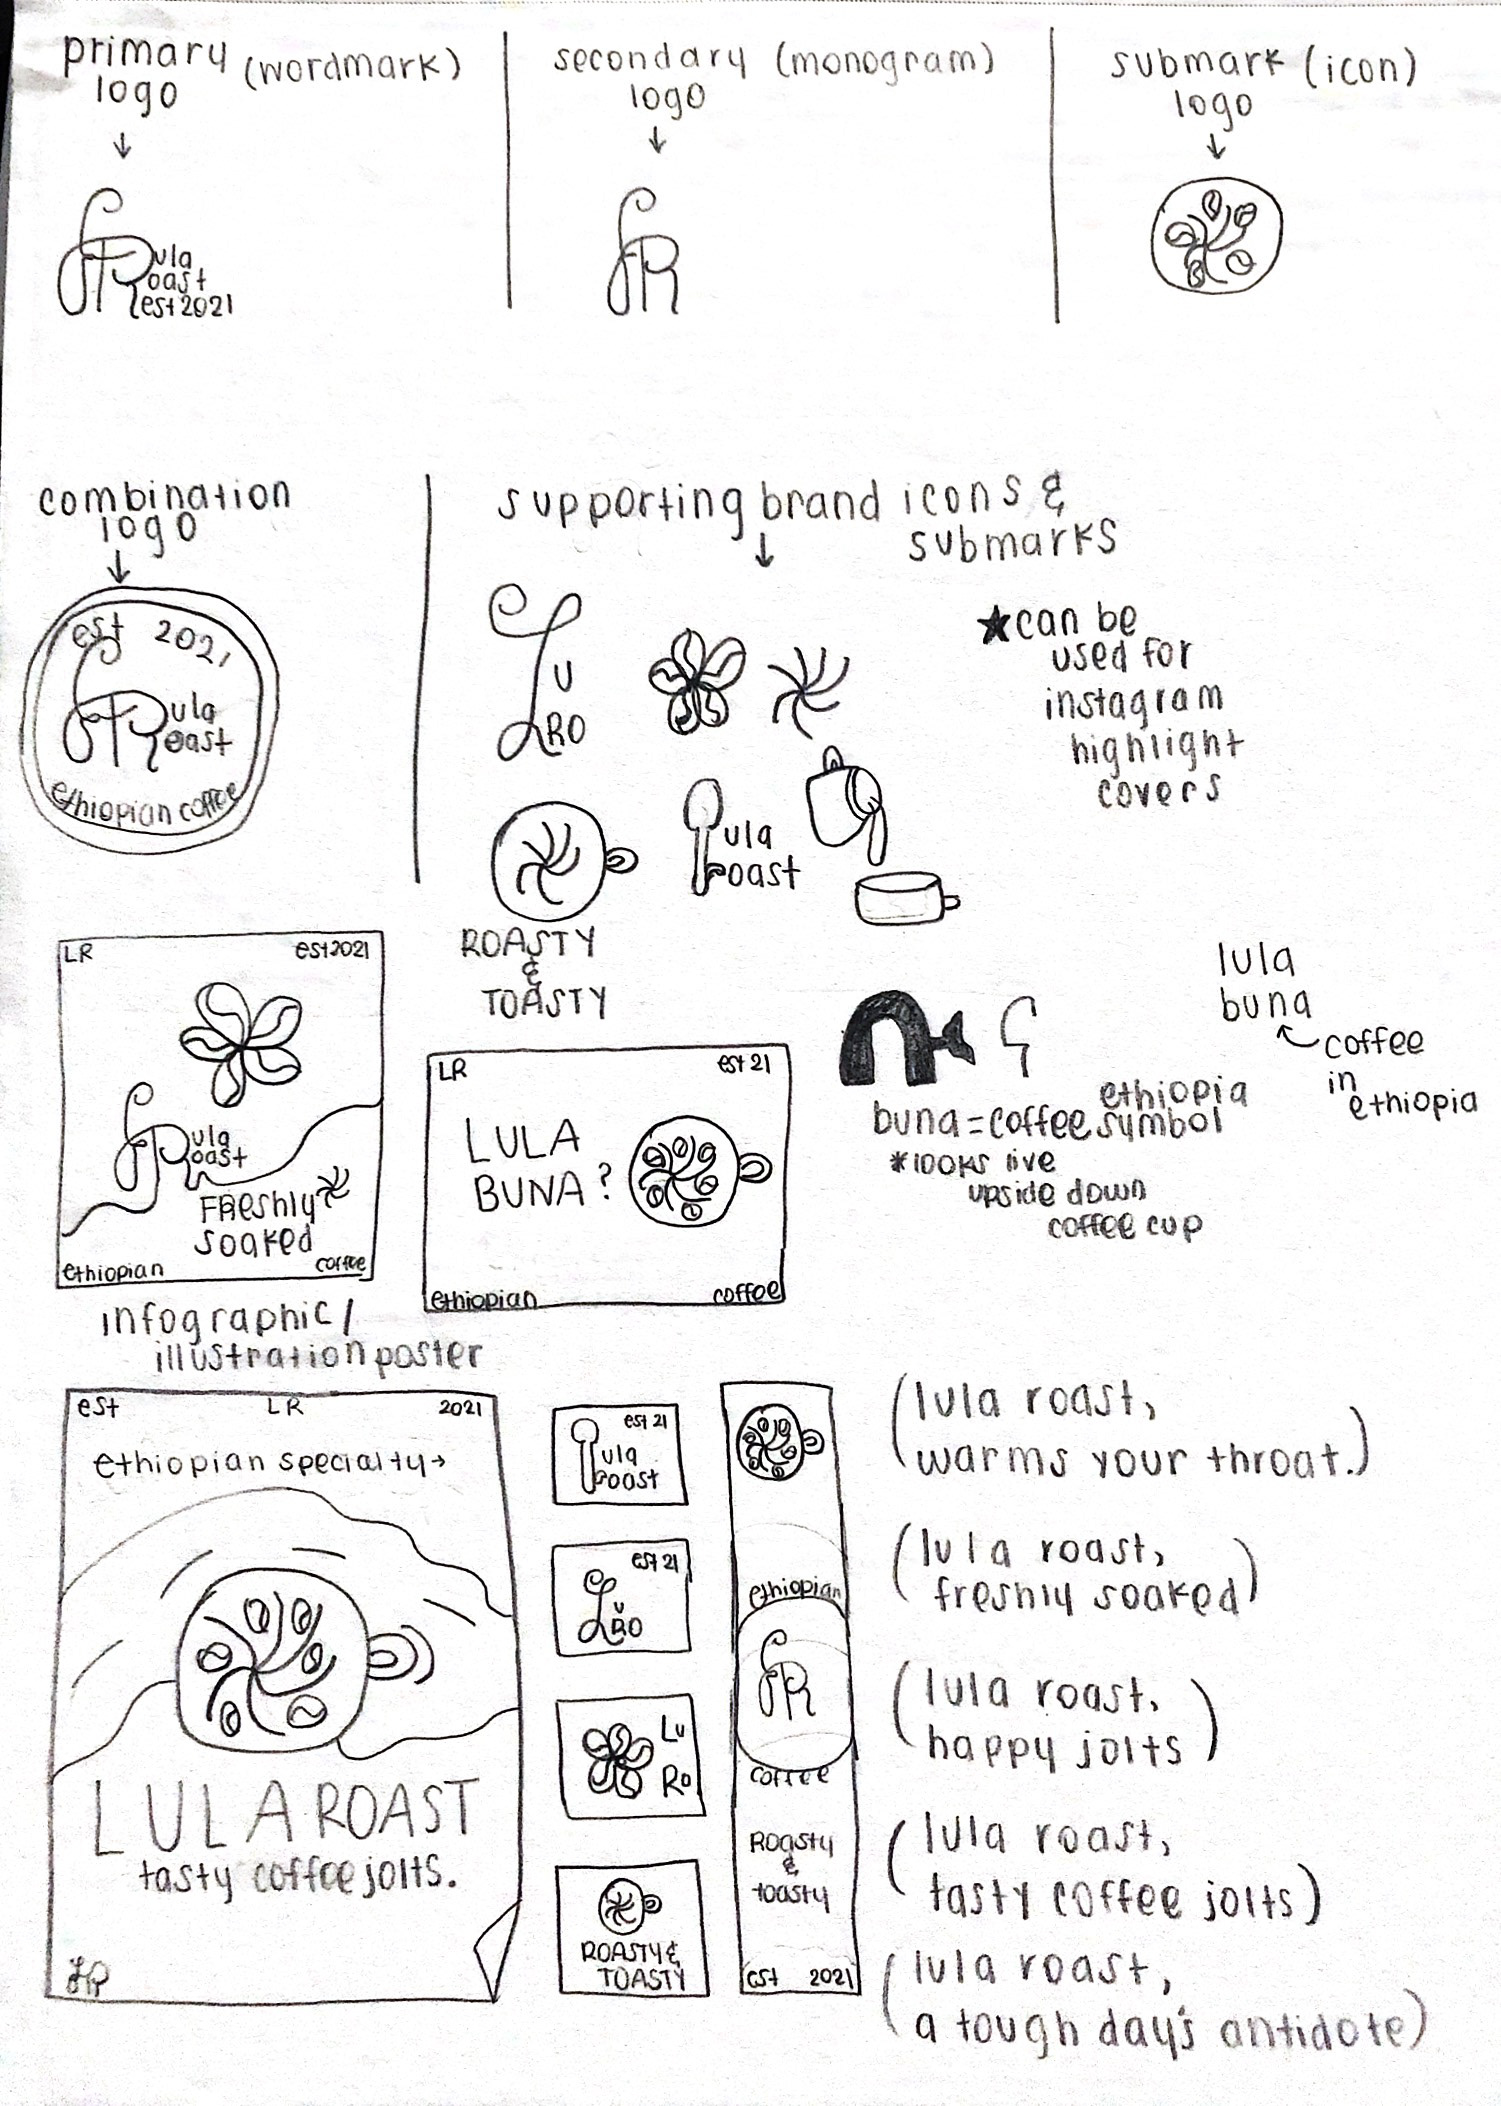 primary (wordmark)
logo
secondary (monogram)
logo
submark (icon)
logo
LRula
oast
est 2021
LR
combination
logo
est 2021
LRula
oast
ethiopian coffee
supporting brand icons &
submarks
★can be
used for
instagram
highlight
covers
L
U
RO
ula
roast
ROASTY
&
TOASTY
LR est 2021
LRula
oast
Freshly
soaked
ethiopian coffee
infographic/
illustration poster
LR est 21
LULA
BUNA?
ethiopian coffee
lula
buna
coffee
in
ethiopia
ethiopia
buna = coffee symbol
*looks live
upside down
coffee cup
est LR 2021
ethiopian specialty→
LULA ROAST
tasty coffee jolts.
LR
est 21
ula
roast
est 21
L
U
RO
Lu
Ro
ROASTY &
TOASTY
ethiopian
LR
coffee
Roasty
&
toasty
est 2021
(lula roast,
warms your throat.)
(lula roast,
freshly soaked)
(lula roast,
happy jolts)
(lula roast,
tasty coffee jolts)
(lula roast,
a tough day's antidote)